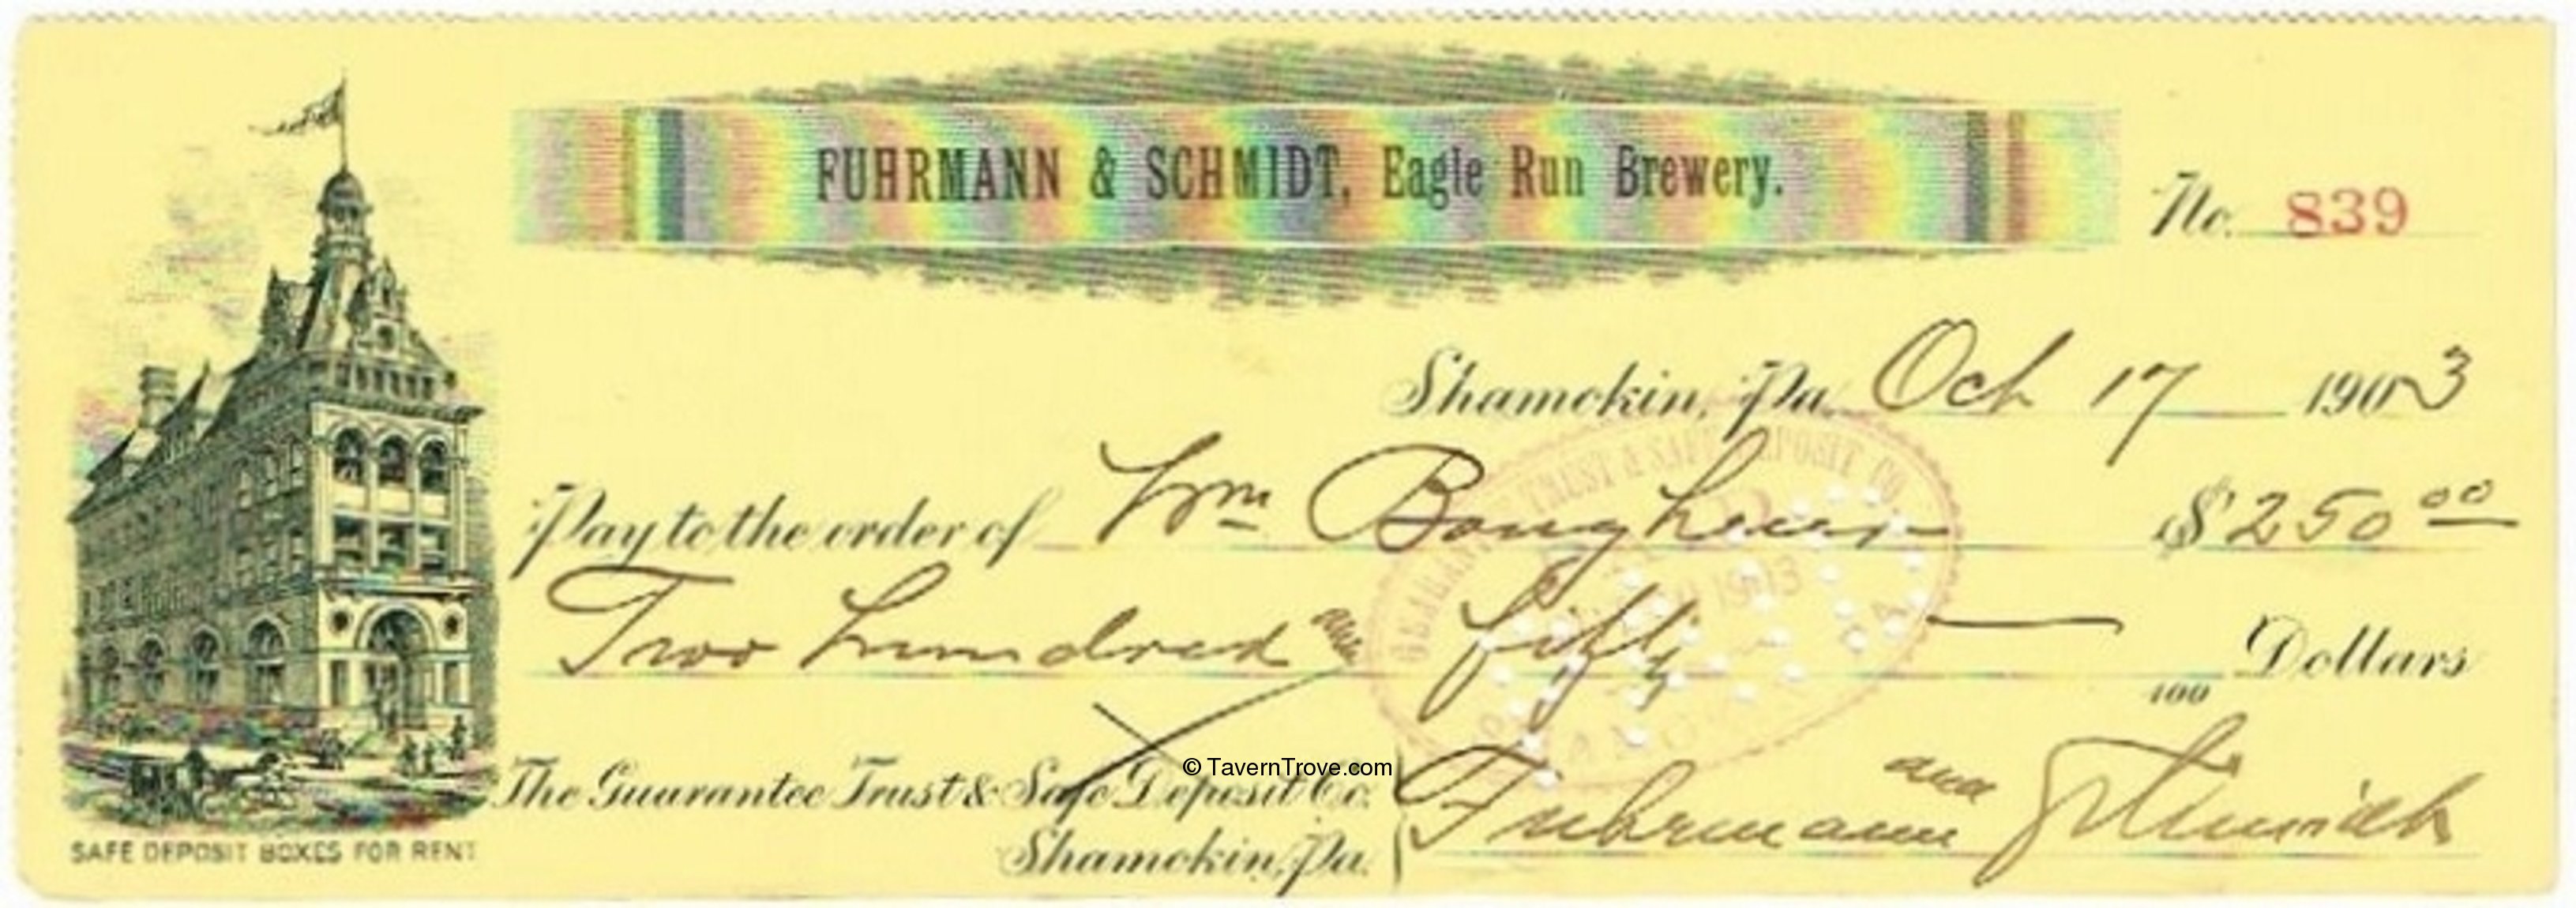 FUHRMANN & SCHMIDT, Eagle Run Brewery.
No. 839
Shamokin, Pa. Oct 17 1903
Pay to the order of Wm $250 00
Two hundred and fifty — /100 Dollars
The Guarantee Trust & Safe Deposit Co.
Shamokin, Pa.
Fuhrmann and Schmidt
SAFE DEPOSIT BOXES FOR RENT
GUARANTEE TRUST & SAFE DEPOSIT CO.
1903
© TavernTrove.com